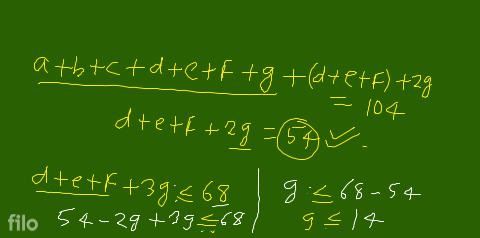 a+b+c+d+e+F+g+(d+e+F)+2g
= 104
d+e+F+2g = 54
d+e+F+3g ≤ 68
54-2g+3g ≤ 68
g ≤ 68-54
g ≤ 14
filo